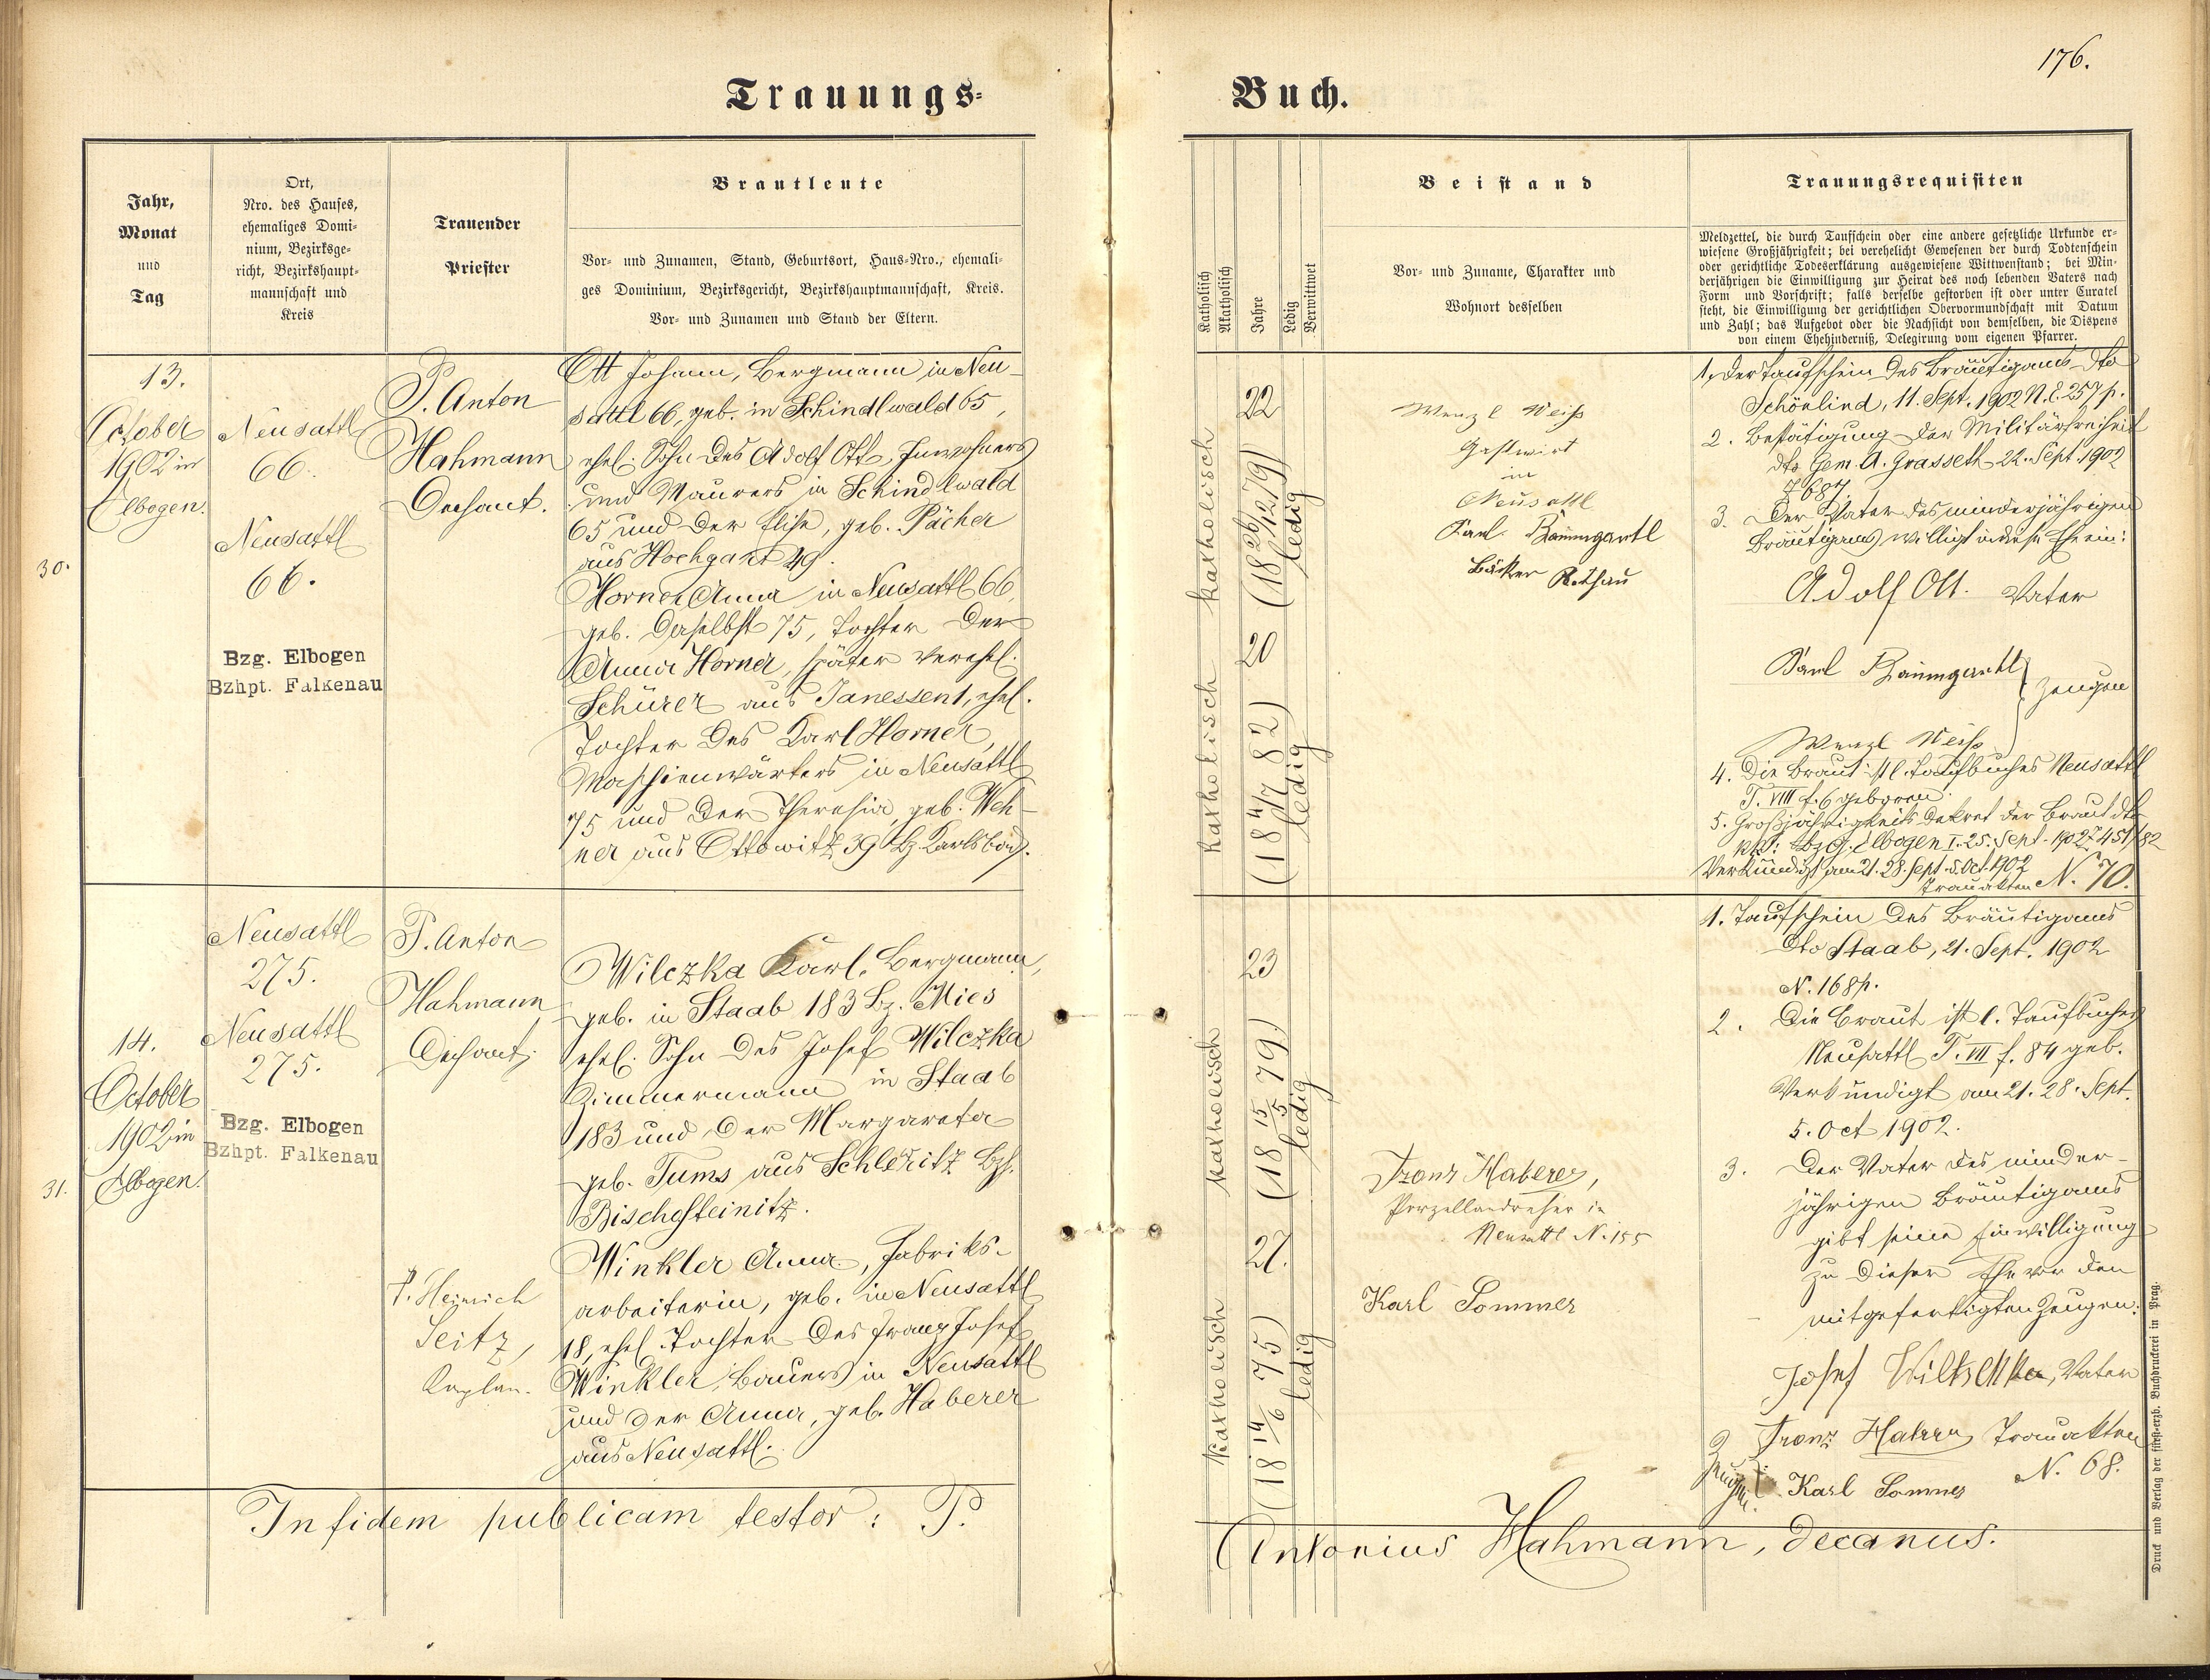 176.
Trauungs-
Buch.
Jahr,
Monat
und
Tag
Ort,
Nro. des Hauses,
ehemaliges Domi-
nium, Bezirksge-
richt, Bezirkshaupt-
mannschaft und
Kreis
Trauender
Priester
Brautleute
Vor- und Zunamen, Stand, Geburtsort, Haus-Nro., ehemali-
ges Dominium, Bezirksgericht, Bezirkshauptmannschaft, Kreis.
Vor- und Zunamen und Stand der Eltern.
Katholisch
Akatholisch
Jahre
Ledig
Verwittwet
Beistand
Vor- und Zuname, Charakter und
Wohnort desselben
Trauungsrequisiten
Meldzettel, die durch Taufschein oder eine andere gesetzliche Urkunde er-
wiesene Großjährigkeit; bei verehelicht Gewesenen der durch Todtenschein
oder gerichtliche Todeserklärung ausgewiesene Wittwenstand; bei Min-
derjährigen die Einwilligung zur Heirat des noch lebenden Vaters nach
Form und Vorschrift; falls derselbe gestorben ist oder unter Curatel
steht, die Einwilligung der gerichtlichen Obervormundschaft mit Datum
und Zahl; das Aufgebot oder die Nachsicht von demselben, die Dispens
von einem Ehehinderniß, Delegirung vom eigenen Pfarrer.
30.
13.
October
1902 in
Elbogen.
Neusattl
66.
Neusattl
66.
Bzg. Elbogen
Bzhpt. Falkenau
P. Anton
Hahmann
Dechant.
Ott Johann, Bergmann in Neu-
sattl 66, geb. in Schindlwald 65,
ehel. Sohn des Adolf Ott, Inwohners
und Maurers in Schindlwald
65 und der Elise, geb. Pächer
aus Hochgart 49.
Horner Anna in Neusattl 66,
geb. daselbst 75, Tochter der
Anna Horner, später verehel.
Schürer aus Janessen 1, ehel.
Tochter des Karl Horner,
Maschienwärters in Neusattl
75 und der Theresia, geb. Weh-
ner aus Ottowitz 39 Bz. Karlsbad.
katholisch
22
(18 26/12 79)
ledig
katholisch
20
(18 4/7 82)
ledig
Wenzl Weiß
Gastwirt
in
Neusattl
Karl Baumgartl
Bäcker Rothau
1. Der Taufschein des Bräutigams dto
Schönlind, 11. Sept. 1902 N. E. 257 p.
2. Bestätigung der Militärfreiheit
dto Gem. A. Grasseth 22. Sept. 1902
Z 687.
3. Der Vater des minderjährigen
Bräutigams willigt in diese Ehe ein:
Adolf Ott. Vater
Karl Baumgartl
Zeugen
Wenzl Weiß
4. Die Braut ist l. Taufbuches Neusattl
T. VIII f. 6 geboren.
5. Großjährigkeits Dekret der Braut dto
Bzg. Elbogen I. 25. Sept. 1902 Z 451/82
Verkündigt am 21. 28. Sept. 5. Oct. 1902
Trauakten N. 70.
31.
14.
October
1902 in
Elbogen.
Neusattl
275.
Neusattl
275.
Bzg. Elbogen
Bzhpt. Falkenau
P. Anton
Hahmann
Dechant;
P. Heinrich
Seitz,
Kaplan.
Wilczka Karl, Bergmann,
geb. in Staab 183 Bz. Mies
ehel. Sohn des Josef Wilczka
Zimmermann in Staab
183 und der Margareta
geb. Tums aus Schleritz Bzh.
Bischofteinitz.
Winkler Anna, Fabriks-
arbeiterin, geb. in Neusattl
18, ehel. Tochter des Franz Josef
Winkler, Bauers in Neusattl
und der Anna, geb. Haberer
aus Neusattl.
katholisch
23
(18 15/5 79.)
ledig
katholisch
27.
(18 14/6 75)
ledig
Franz Haberer,
Porzellandreher in
Neusattl N. 155
Karl Sommer
1. Taufschein des Bräutigams
dto Staab, 21. Sept. 1902
N. 168 p.
2. Die Braut ist l. Taufbuches
Neusattl T. VII f. 84 geb.
Verkündigt am 21. 28. Sept.
5. Oct 1902.
3. Der Vater des minder-
jährigen Bräutigams
gibt seine Einwilligung
zu dieser Ehe vor den
mitgefertigten Zeugen:
Josef Vater
Franz Haberer Trauakten
N. 68.
Karl Sommer
In fidem publicam testor: P.
Antonius Hahmann, decanus.
Druck und Verlag der fürst-erzb. Buchdruckerei in Prag.